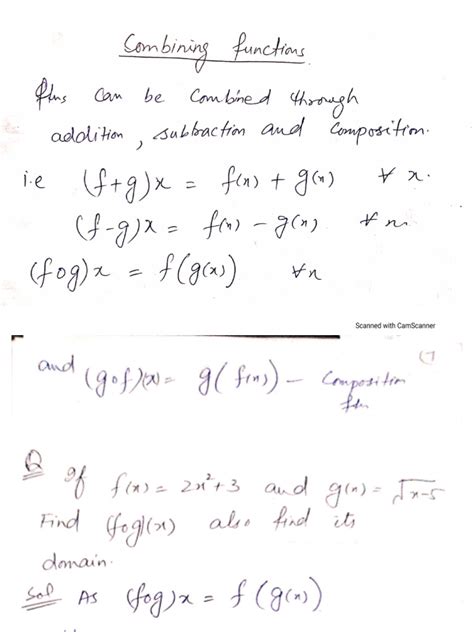 Combining functions.
ftns can be combined through
addition, subtraction and composition.
i.e (f+g)x = f(x) + g(x) ∀ x.
(f-g)x = f(x) - g(x) ∀ x
(fog)x = f(g(x)) ∀x
Scanned with CamScanner
and (gof)(x) = g(f(x)) – Composition
ftn
Q If f(x) = 2x²+3 and g(x) = √x-5
Find (fog)(x) also find its
domain.
Sol As (fog)x = f(g(x))